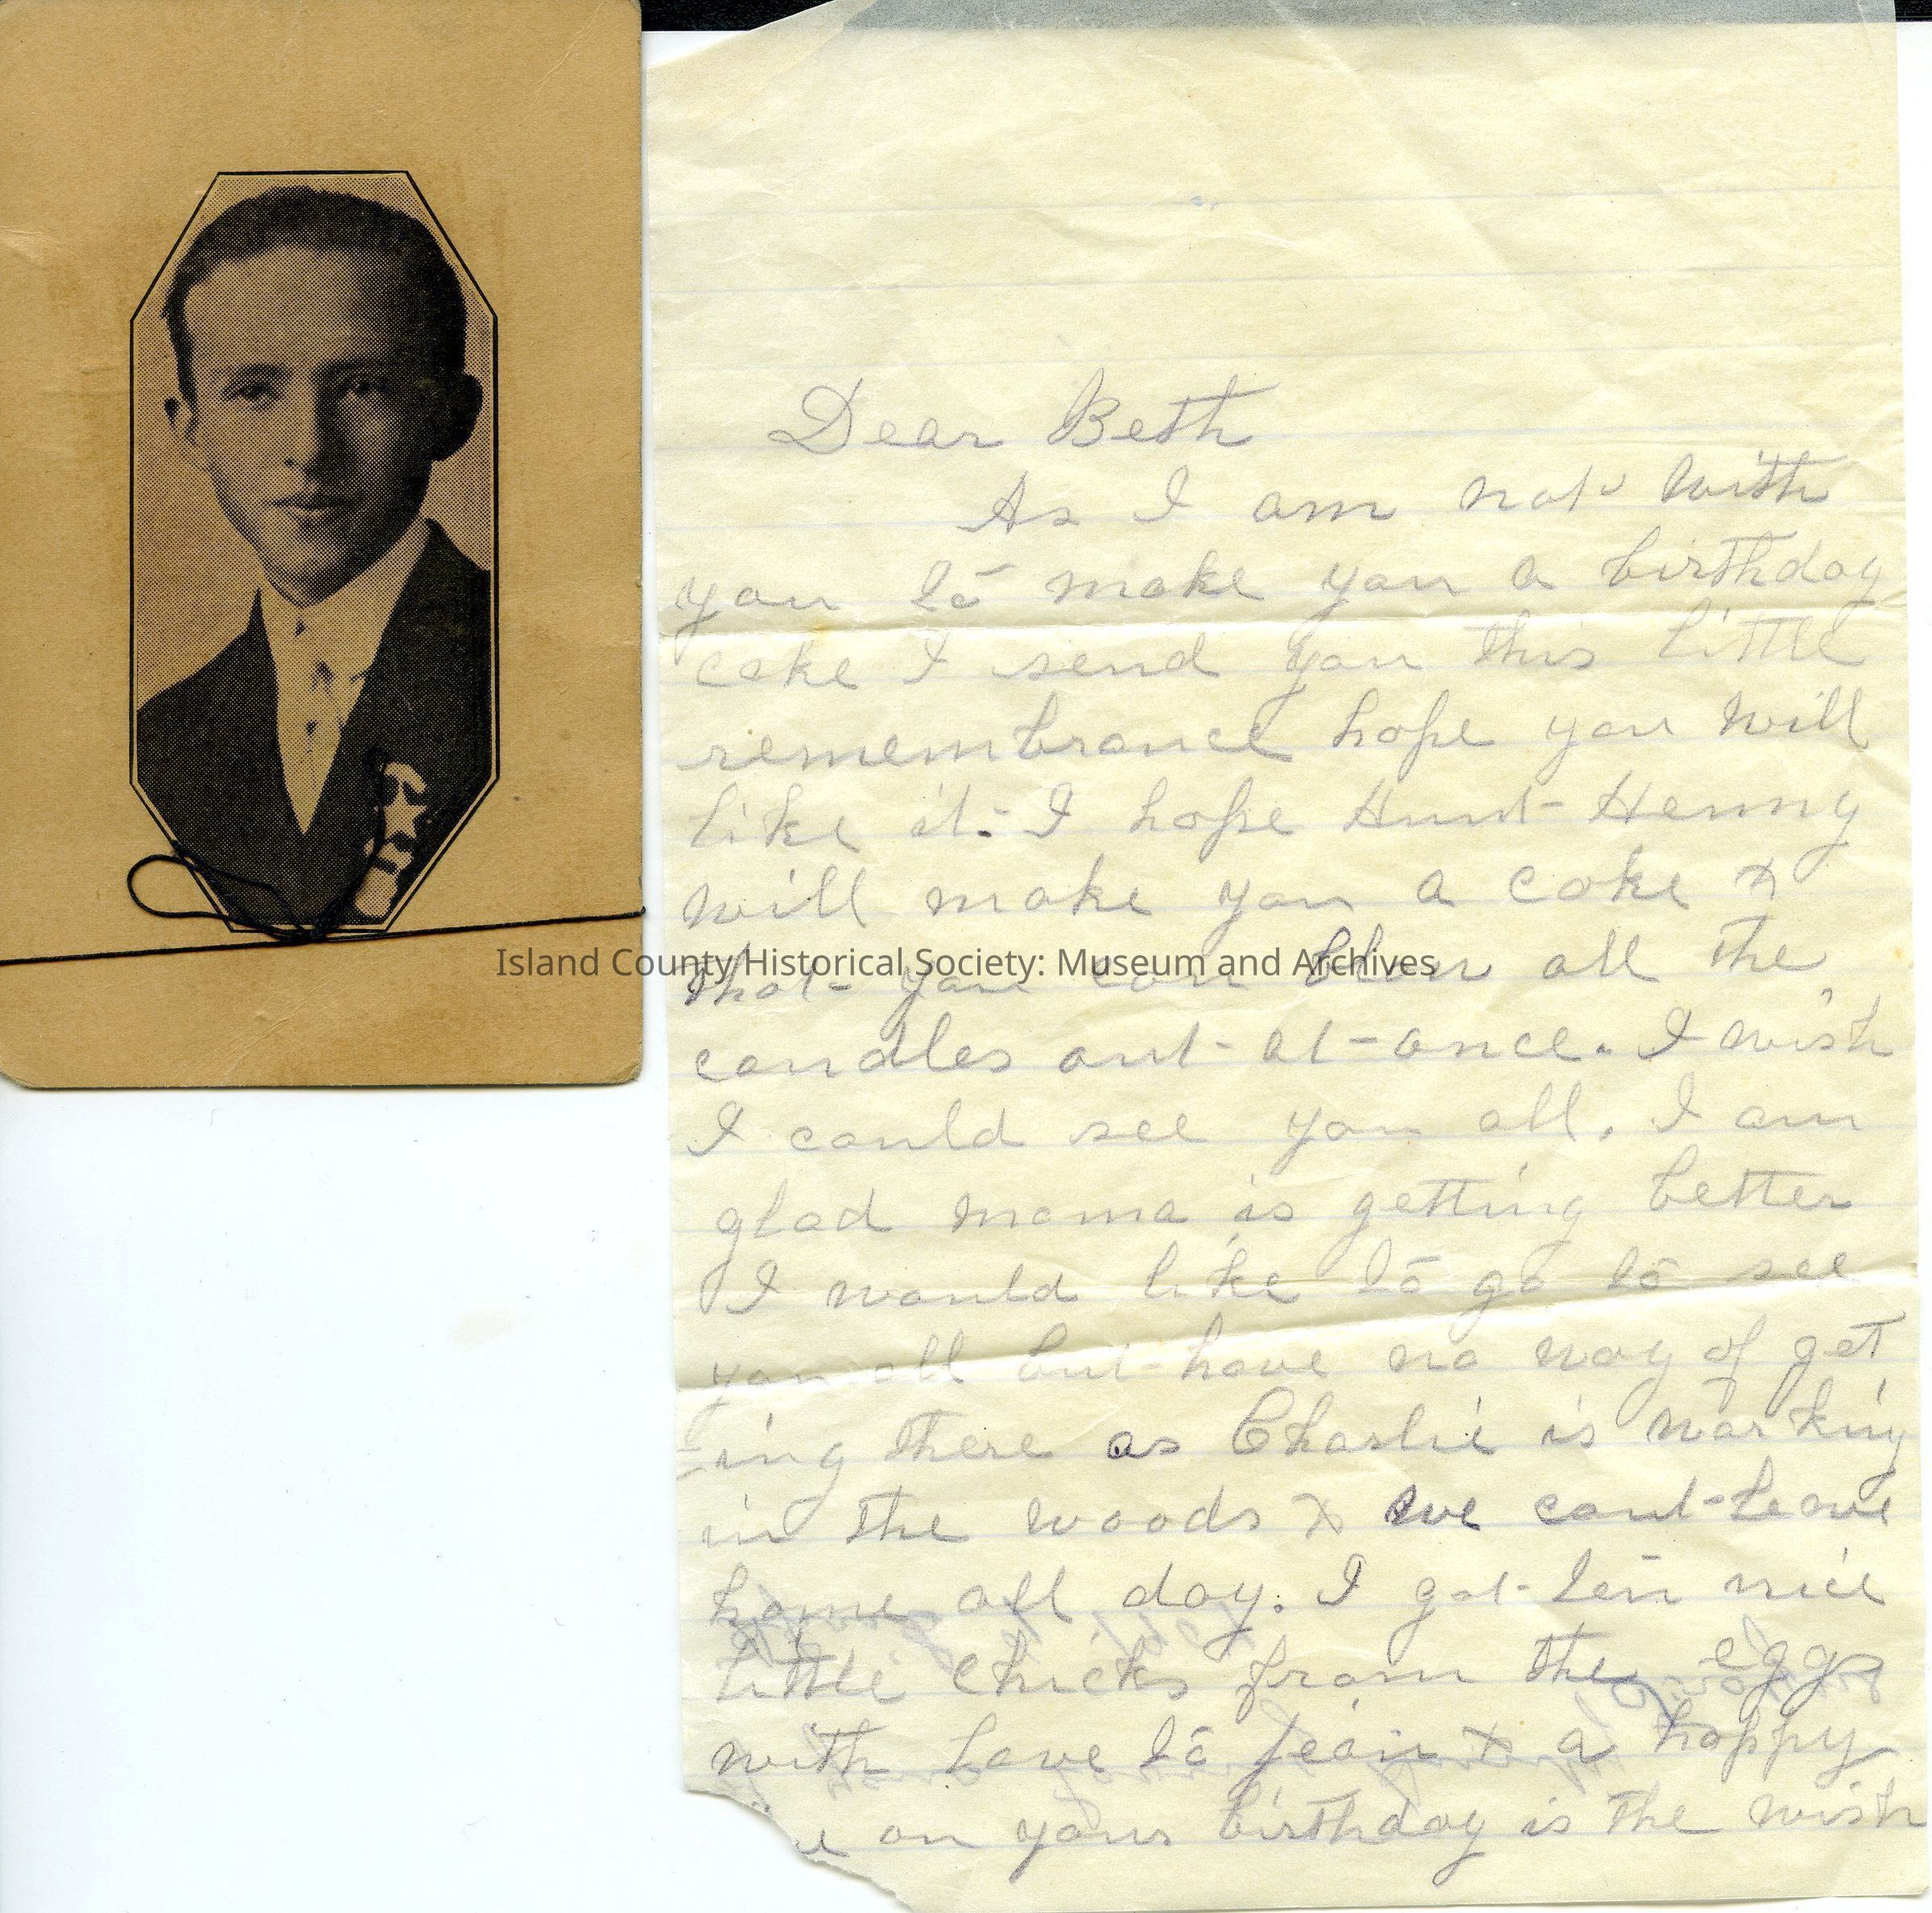 Dear Beth
As I am not with
you to make you a birthday
cake I send you this little
remembrance hope you will
like it. I hope Aunt Henny
will make you a cake &
that you can blow all the
Island County Historical Society: Museum and Archives
candles out at once. I wish
I could see you all. I am
glad mama is getting better
I would like to go to see
you all but have no way of get
-ing there as Charlie is working
in the woods & we cant leave
home all day. I got ten nice
little chicks from the eggs
with love to Jean & a happy
on your birthday is the wish